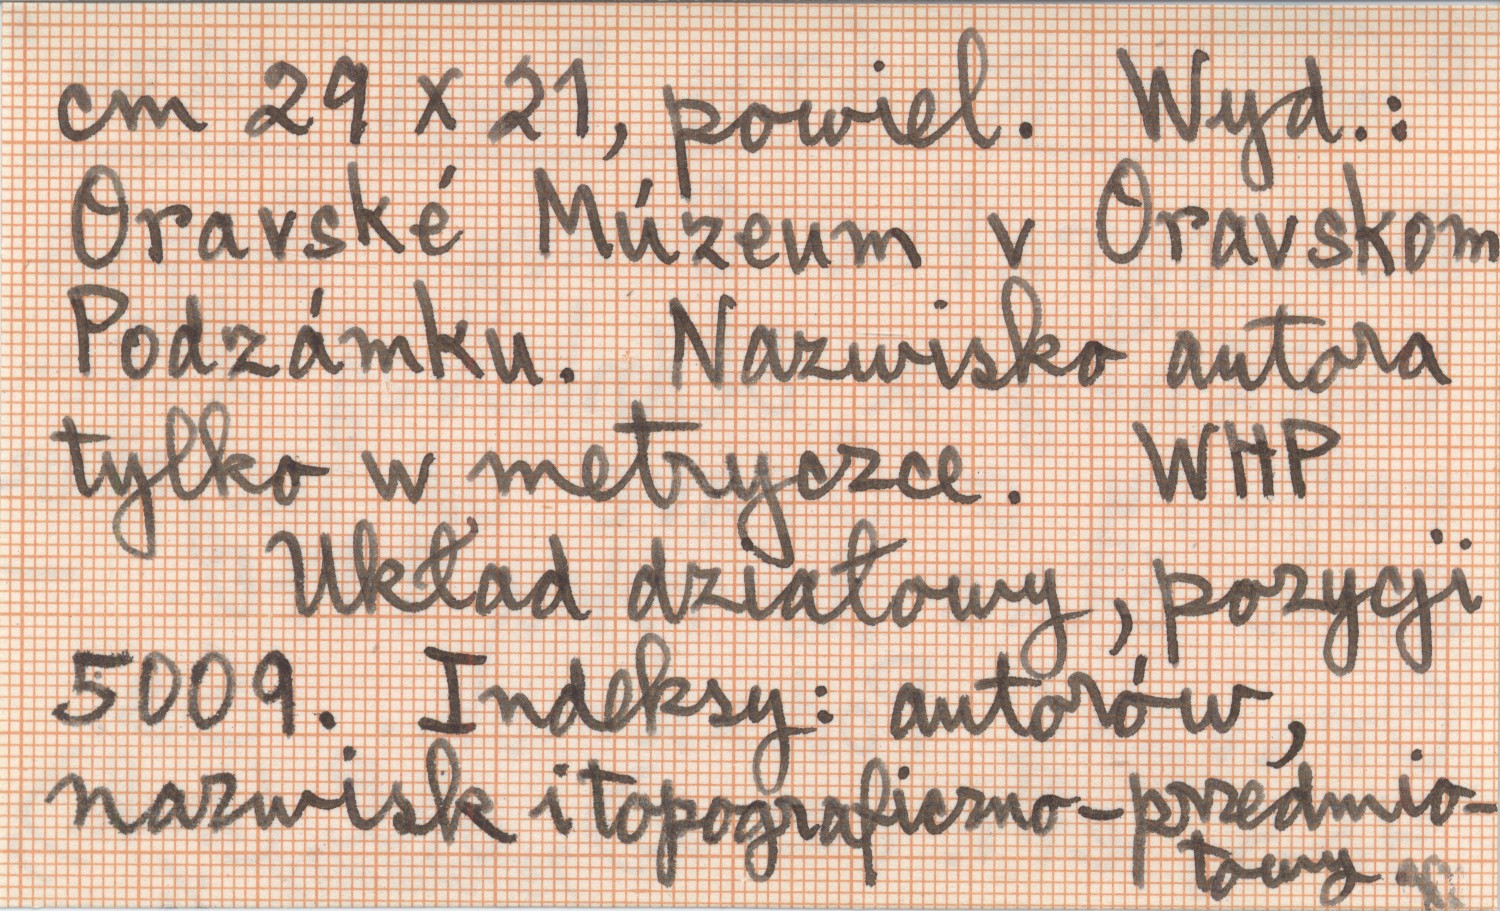 cm 29 x 21, powiel. Wyd.:
Oravské Múzeum v Oravskom
Podzámku. Nazwisko autora
tylko w metryczce. WHP
Układ działowy, pozycji
5009. Indeksy: autorów,
nazwisk i topograficzno-przedmio-
towy.